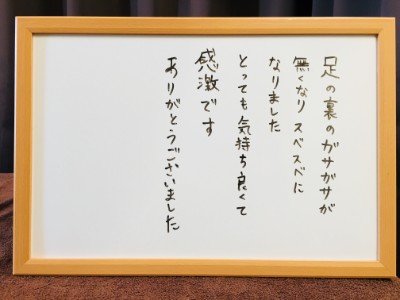 足の裏のガサガサが
無くなり スベスベに
なりました
とっても気持ち良くて
感激です
ありがとうございました